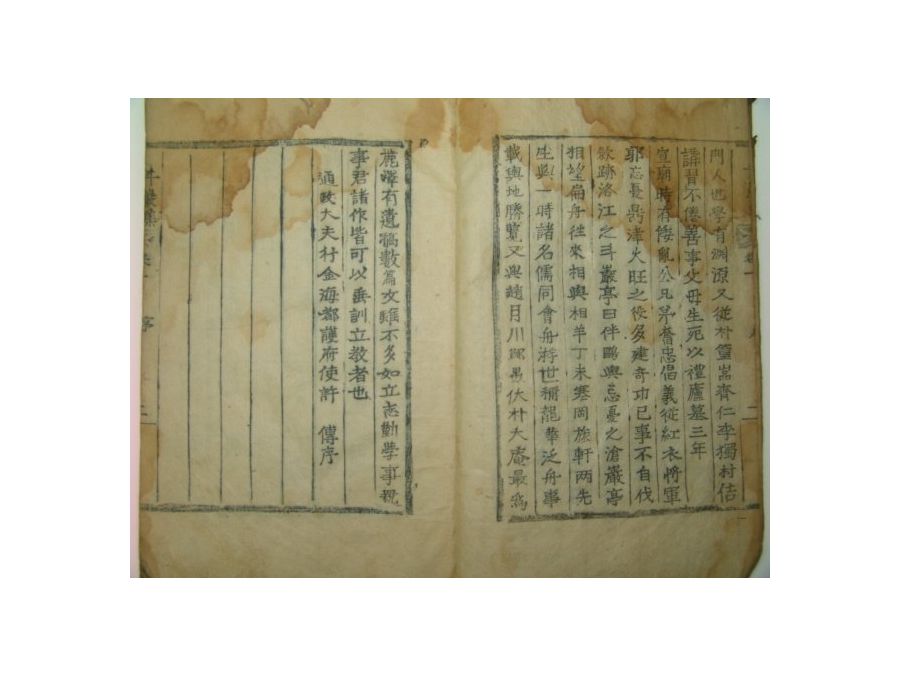 門人也學有淵源又從朴篁嵓齊仁李獨村佶
講習不倦善事父母生死以禮廬墓三年
宣廟時有倭亂公兄弟奮忠倡義從紅衣將軍
郭忘憂鼎津火旺之役多建奇功已事不自伐
斂跡洛江之斗巖亭曰伴鷗與忘憂之滄巖亭
相望扁舟往來相與相羊丁未寒岡旅軒兩先
生與一時諸名儒同會舟游世稱龍華泛舟事
載輿地勝覽又與趙月川朴大庵最爲
麗澤有遺稿數篇文雖不多如立志勤學事親
事君諸作皆可以垂訓立教者也
通政大夫行金海都護府使許 傳序
序
二